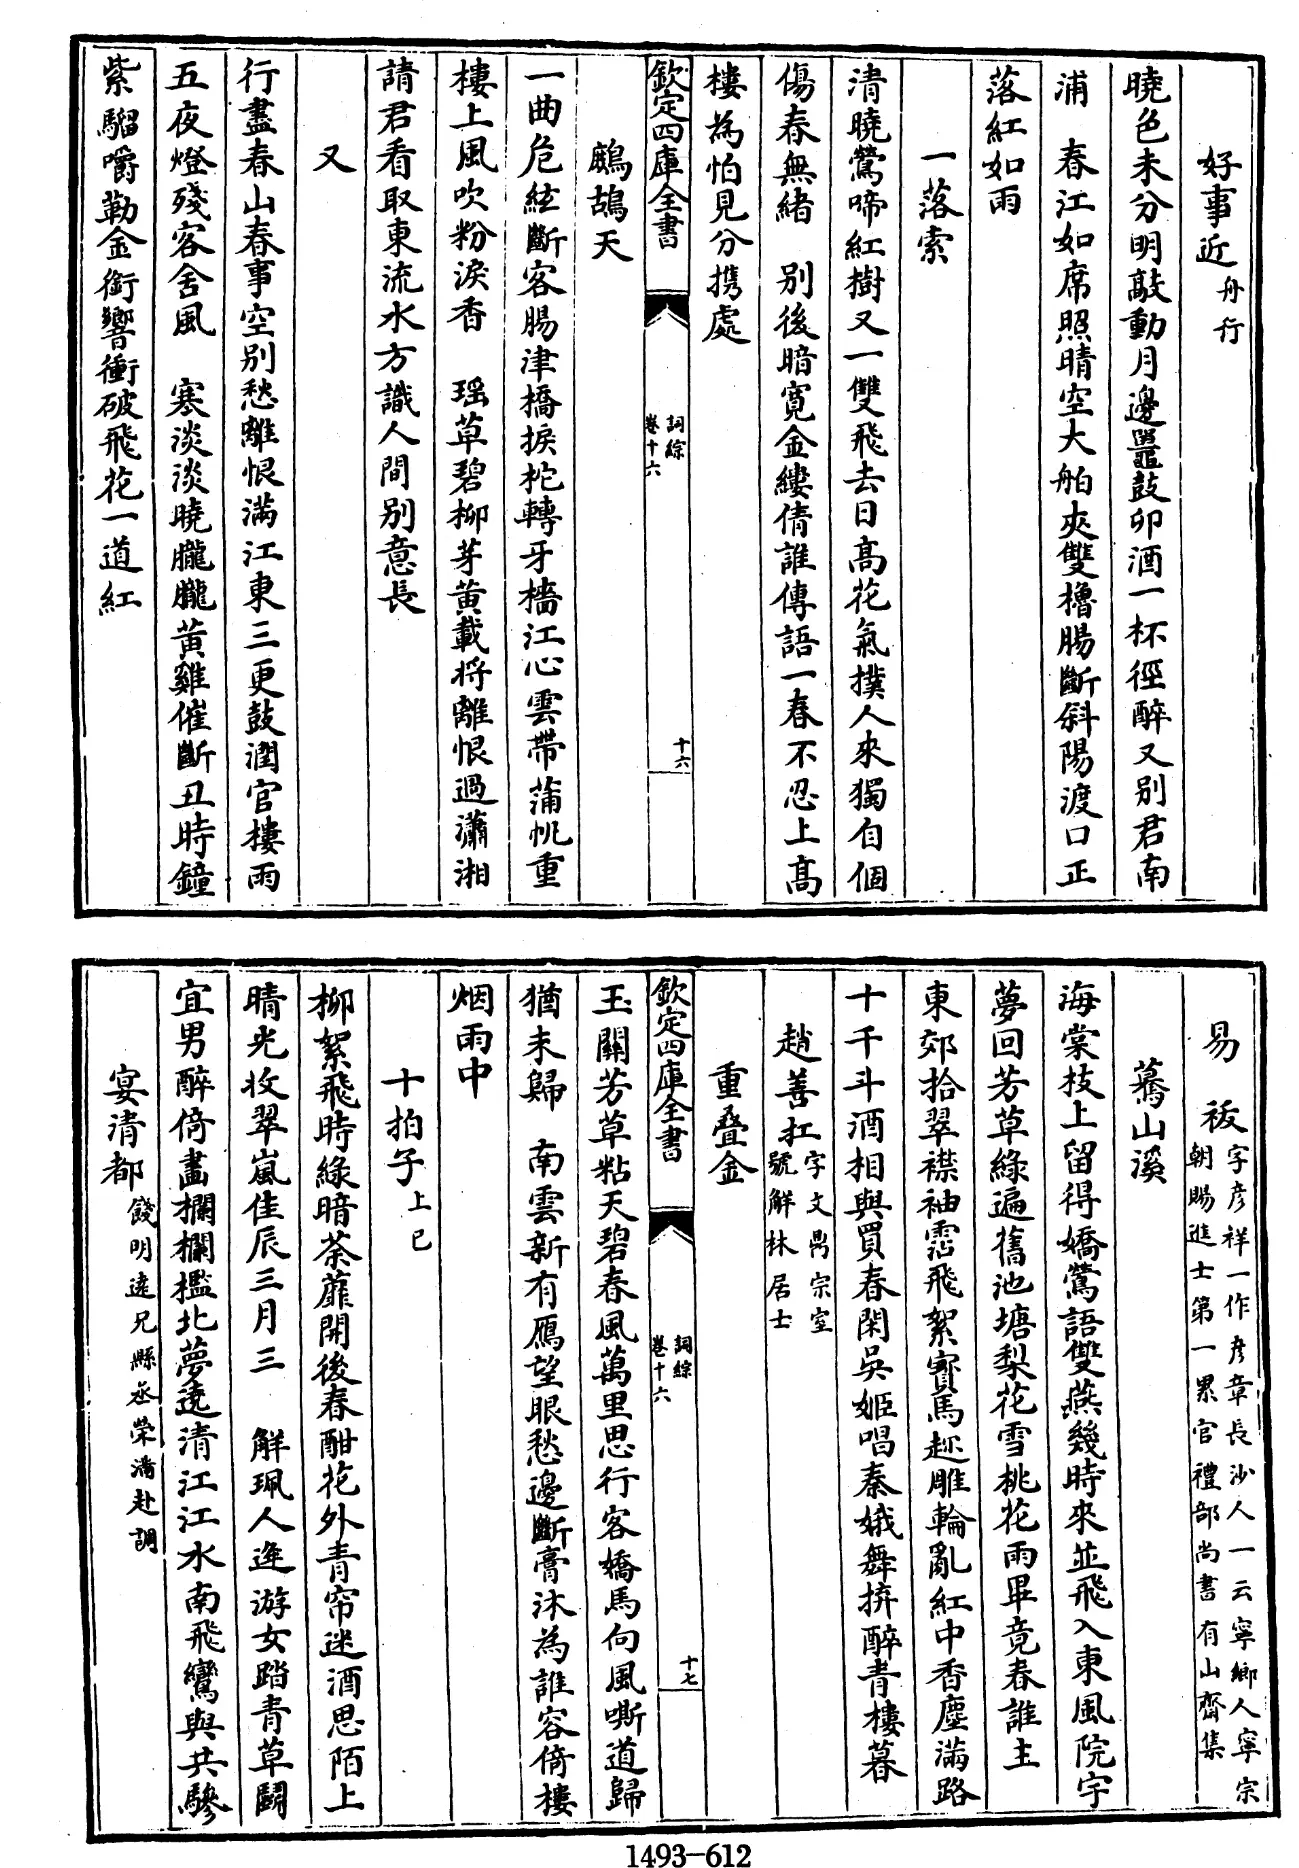 好事近舟行
曉色未分明敲動月邊鼉鼓卯酒一杯徑醉又别君南
浦　春江如席照晴空大舶夾雙櫓腸斷斜陽渡口正
落紅如雨
一落索
清曉鶯啼紅樹又一雙飛去日高花氣撲人來獨自個
傷春無緒　别後暗寛金縷倩誰傳語一春不忍上高
樓為怕見分擕處
欽定四庫全書
詞綜
卷十六
十六
鷓鴣天
一曲危絃斷客腸津橋捩柁轉牙檣江心雲帶蒲帆重
樓上風吹粉淚香　瑶草碧柳芽黄載將離恨過瀟湘
請君看取東流水方識人間别意長
又
行盡春山春事空别愁離恨滿江東三更鼓潤官樓雨
五夜燈殘客舍風　寒淡淡曉朧朧黄雞催斷丑時鐘
紫騮嚼勒金銜響衝破飛花一道紅
易祓字彦祥一作彦章長沙人一云寧鄉人寧宗
朝賜進士第一累官禮部尚書有山齋集
驀山溪
海棠枝上留得嬌鶯語雙燕幾時來並飛入東風院宇
夢回芳草緑遍舊池塘梨花雪桃花雨畢竟春誰主
東郊拾翠襟袖霑飛絮寳馬趂雕輪亂紅中香塵滿路
十千斗酒相與買春閑吳姬唱秦娥舞拚醉青樓暮
趙善扛字文鼎宗室
號解林居士
重叠金
欽定四庫全書
詞綜
卷十六
十七
玉關芳草粘天碧春風萬里思行客嬌馬向風嘶道歸
猶未歸　南雲新有鴈望眼愁邊斷膏沐為誰容倚樓
烟雨中
十拍子上巳
柳絮飛時緑暗荼蘼開後春酣花外青帘迷酒思陌上
晴光收翠嵐佳辰三月三　解珮人逢游女踏青草鬭
宜男醉倚畫欄欄檻北夢遶清江江水南飛鸞與共驂
宴清都餞明逺兄縣丞榮滿赴調
1493-612